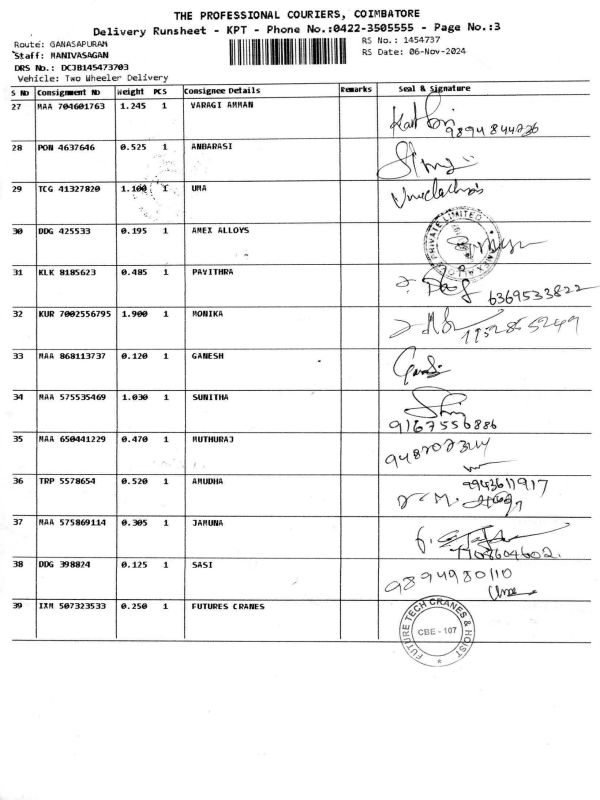 THE PROFESSIONAL COURIERS, COIMBATORE
Delivery Runsheet - KPT - Phone No.:0422-3505555 - Page No.:3
Route: GANASAPURAM RS No.: 1454737
Staff: MANIVASAGAN RS Date: 06-Nov-2024
DRS No.: DCJB145473703
Vehicle: Two Wheeler Delivery
S No Consignment No Weight PCS Consignee Details Remarks Seal & Signature
27 MAA 704601763 1.245 1 VARAGI AMMAN
9894844226
28 PON 4637646 0.525 1 ANBARASI
29 TCG 41327820 1.100 1 UMA
30 DDG 425533 0.195 1 AMEX ALLOYS
PRIVATE LIMITED
31 KLK 8185623 0.485 1 PAVITHRA
6369533822
32 KUR 7002556795 1.900 1 MONIKA
33 MAA 868113737 0.120 1 GANESH
34 MAA 575535469 1.030 1 SUNITHA
9167556886
35 MAA 650441229 0.470 1 MUTHURAJ
36 TRP 5578654 0.520 1 AMUDHA
9943611917
37 MAA 575869114 0.305 1 JAMUNA
38 DDG 398824 0.125 1 SASI
9894980110
39 IXM 507323533 0.250 1 FUTURES CRANES
FUTURE TECH CRANES & HOIST
CBE - 107